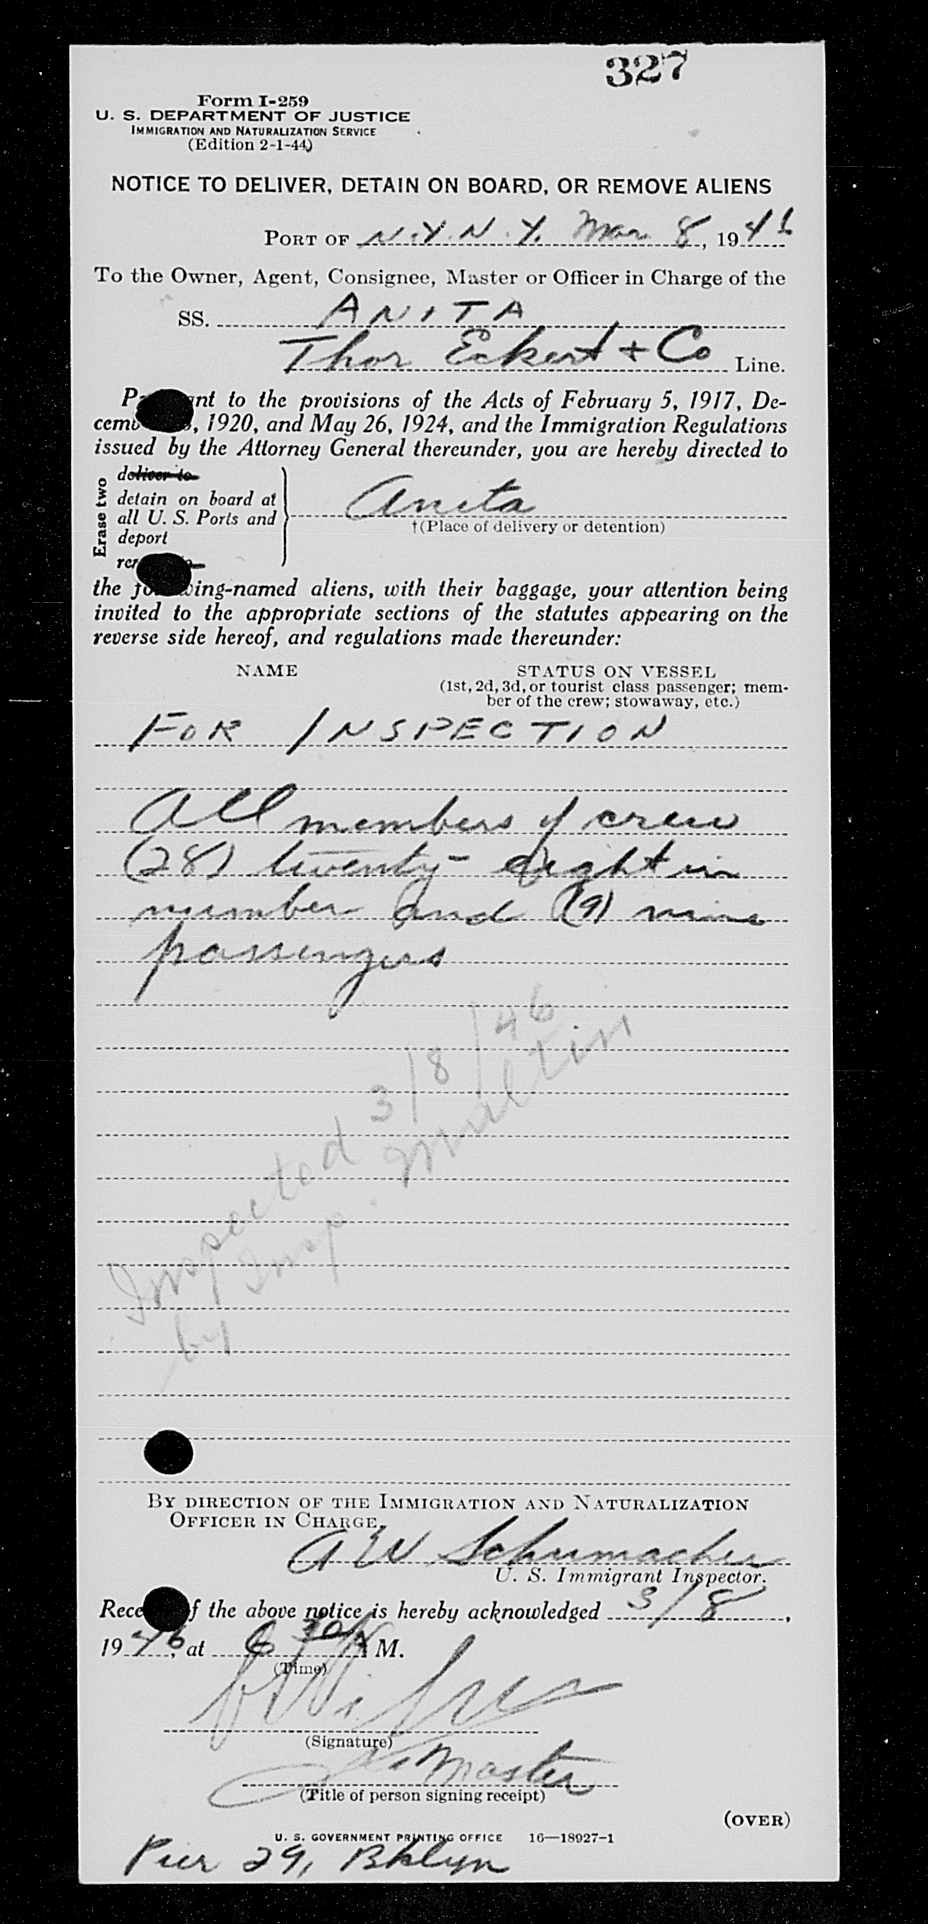 327
Form I-259
U. S. DEPARTMENT OF JUSTICE
IMMIGRATION AND NATURALIZATION SERVICE
(Edition 2-1-44)
NOTICE TO DELIVER, DETAIN ON BOARD, OR REMOVE ALIENS
PORT OF N.Y. N.Y. Mar 8, 1946
To the Owner, Agent, Consignee, Master or Officer in Charge of the
SS. ANITA
Thor Eckert + Co Line.
nt to the provisions of the Acts of February 5, 1917, De-
cem , 1920, and May 26, 1924, and the Immigration Regulations
issued by the Attorney General thereunder, you are hereby directed to
Erase two
deliver to
detain on board at
all U. S. Ports and
deport
Anita
†(Place of delivery or detention)
the ing-named aliens, with their baggage, your attention being
invited to the appropriate sections of the statutes appearing on the
reverse side hereof, and regulations made thereunder:
NAME STATUS ON VESSEL
(1st, 2d, 3d, or tourist class passenger; mem-
ber of the crew; stowaway, etc.)
FOR INSPECTION
All members of crew
(28) twenty-eight in
number and (9) nine
passengers
Inspected 3/8/46
by Insp.
BY DIRECTION OF THE IMMIGRATION AND NATURALIZATION
OFFICER IN CHARGE,
A W Schumacher
U. S. Immigrant Inspector.
Rece f the above notice is hereby acknowledged 3/8,
1946, at 6 30 A M.
(Time)
(Signature)
Master
(Title of person signing receipt)
(OVER)
U. S. GOVERNMENT PRINTING OFFICE 16—18927-1
Pier 29, Bklyn